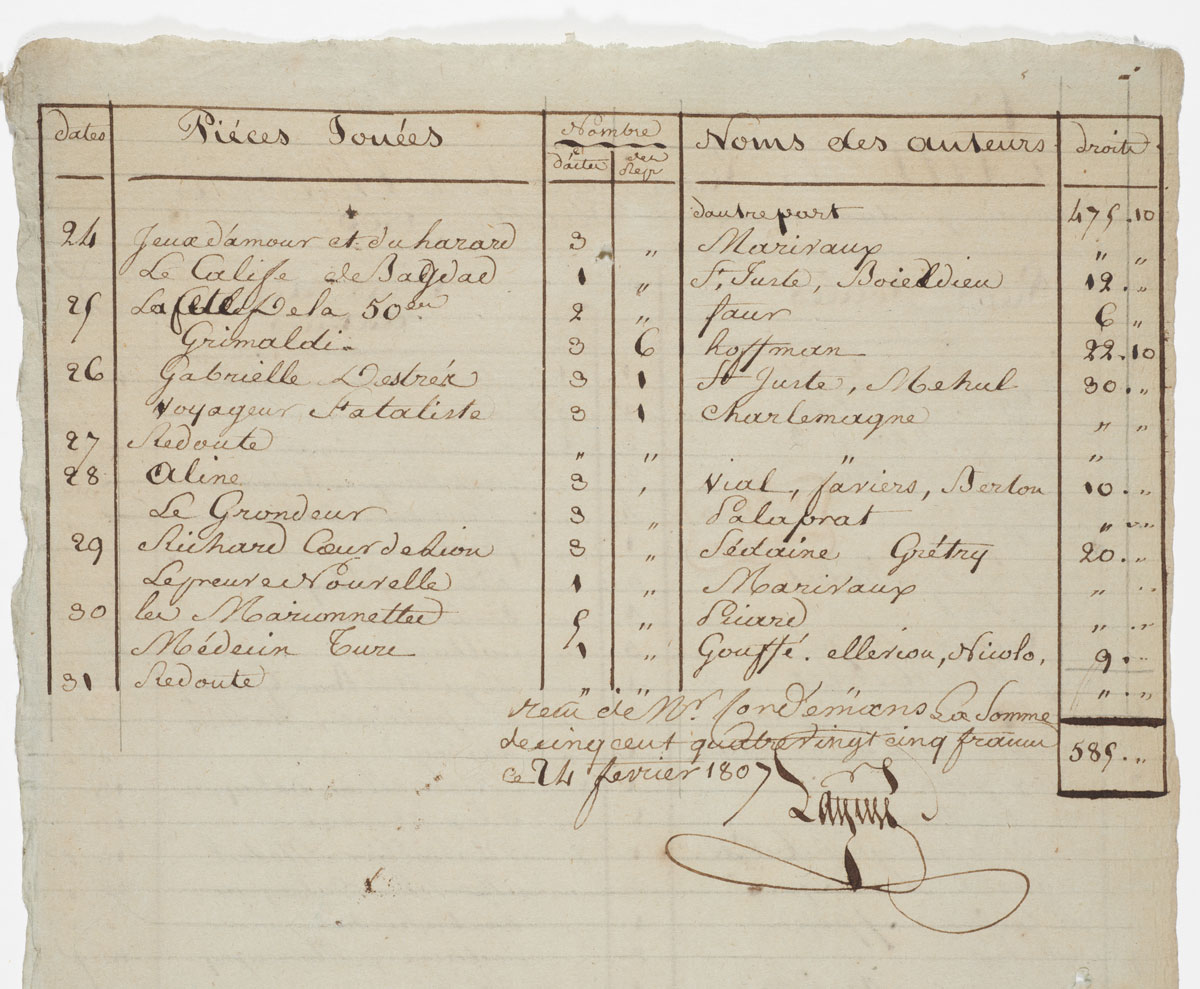 dates Piéces Jouées Nombre Noms des auteurs droits
et
d'actes des Repr
d'autre part 475 . 10
24 Jeux d'amour et du hazard 3 „ Marivaux „ „
Le Calife de Bagdad 1 „ St. Juste, Boieldieu 12 . „
25 La fête De la 50ne 2 „ faur 6 „
Grimaldi. 3 6 hoffman 22 . 10
26 Gabrielle Destrées 3 1 St Juste, Mehul 30 . „
Voyageur fataliste 3 1 Charlemagne „ „
27 Redoute „ „ „ „
28 Aline 3 , Vial, faviers, Berton 10 . „
Le Grondeur 3 „ Palaprat „ „
29 Richard Cœur de Lion 3 „ Sédaine Grétry 20 . „
Lepreuve Nouvelle 1 „ Marivaux „ „
30 les Marionnettes 5 „ Picard „ „
Médecin Turc 1 „ Gouffé. elleviou, Nicolo, 9 . „
31 Redoute „ „ „ „ „
reçu de Mr. La Somme
de cinq cent quatre vingt cinq francs 585 . „
ce 24 fevrier 1807